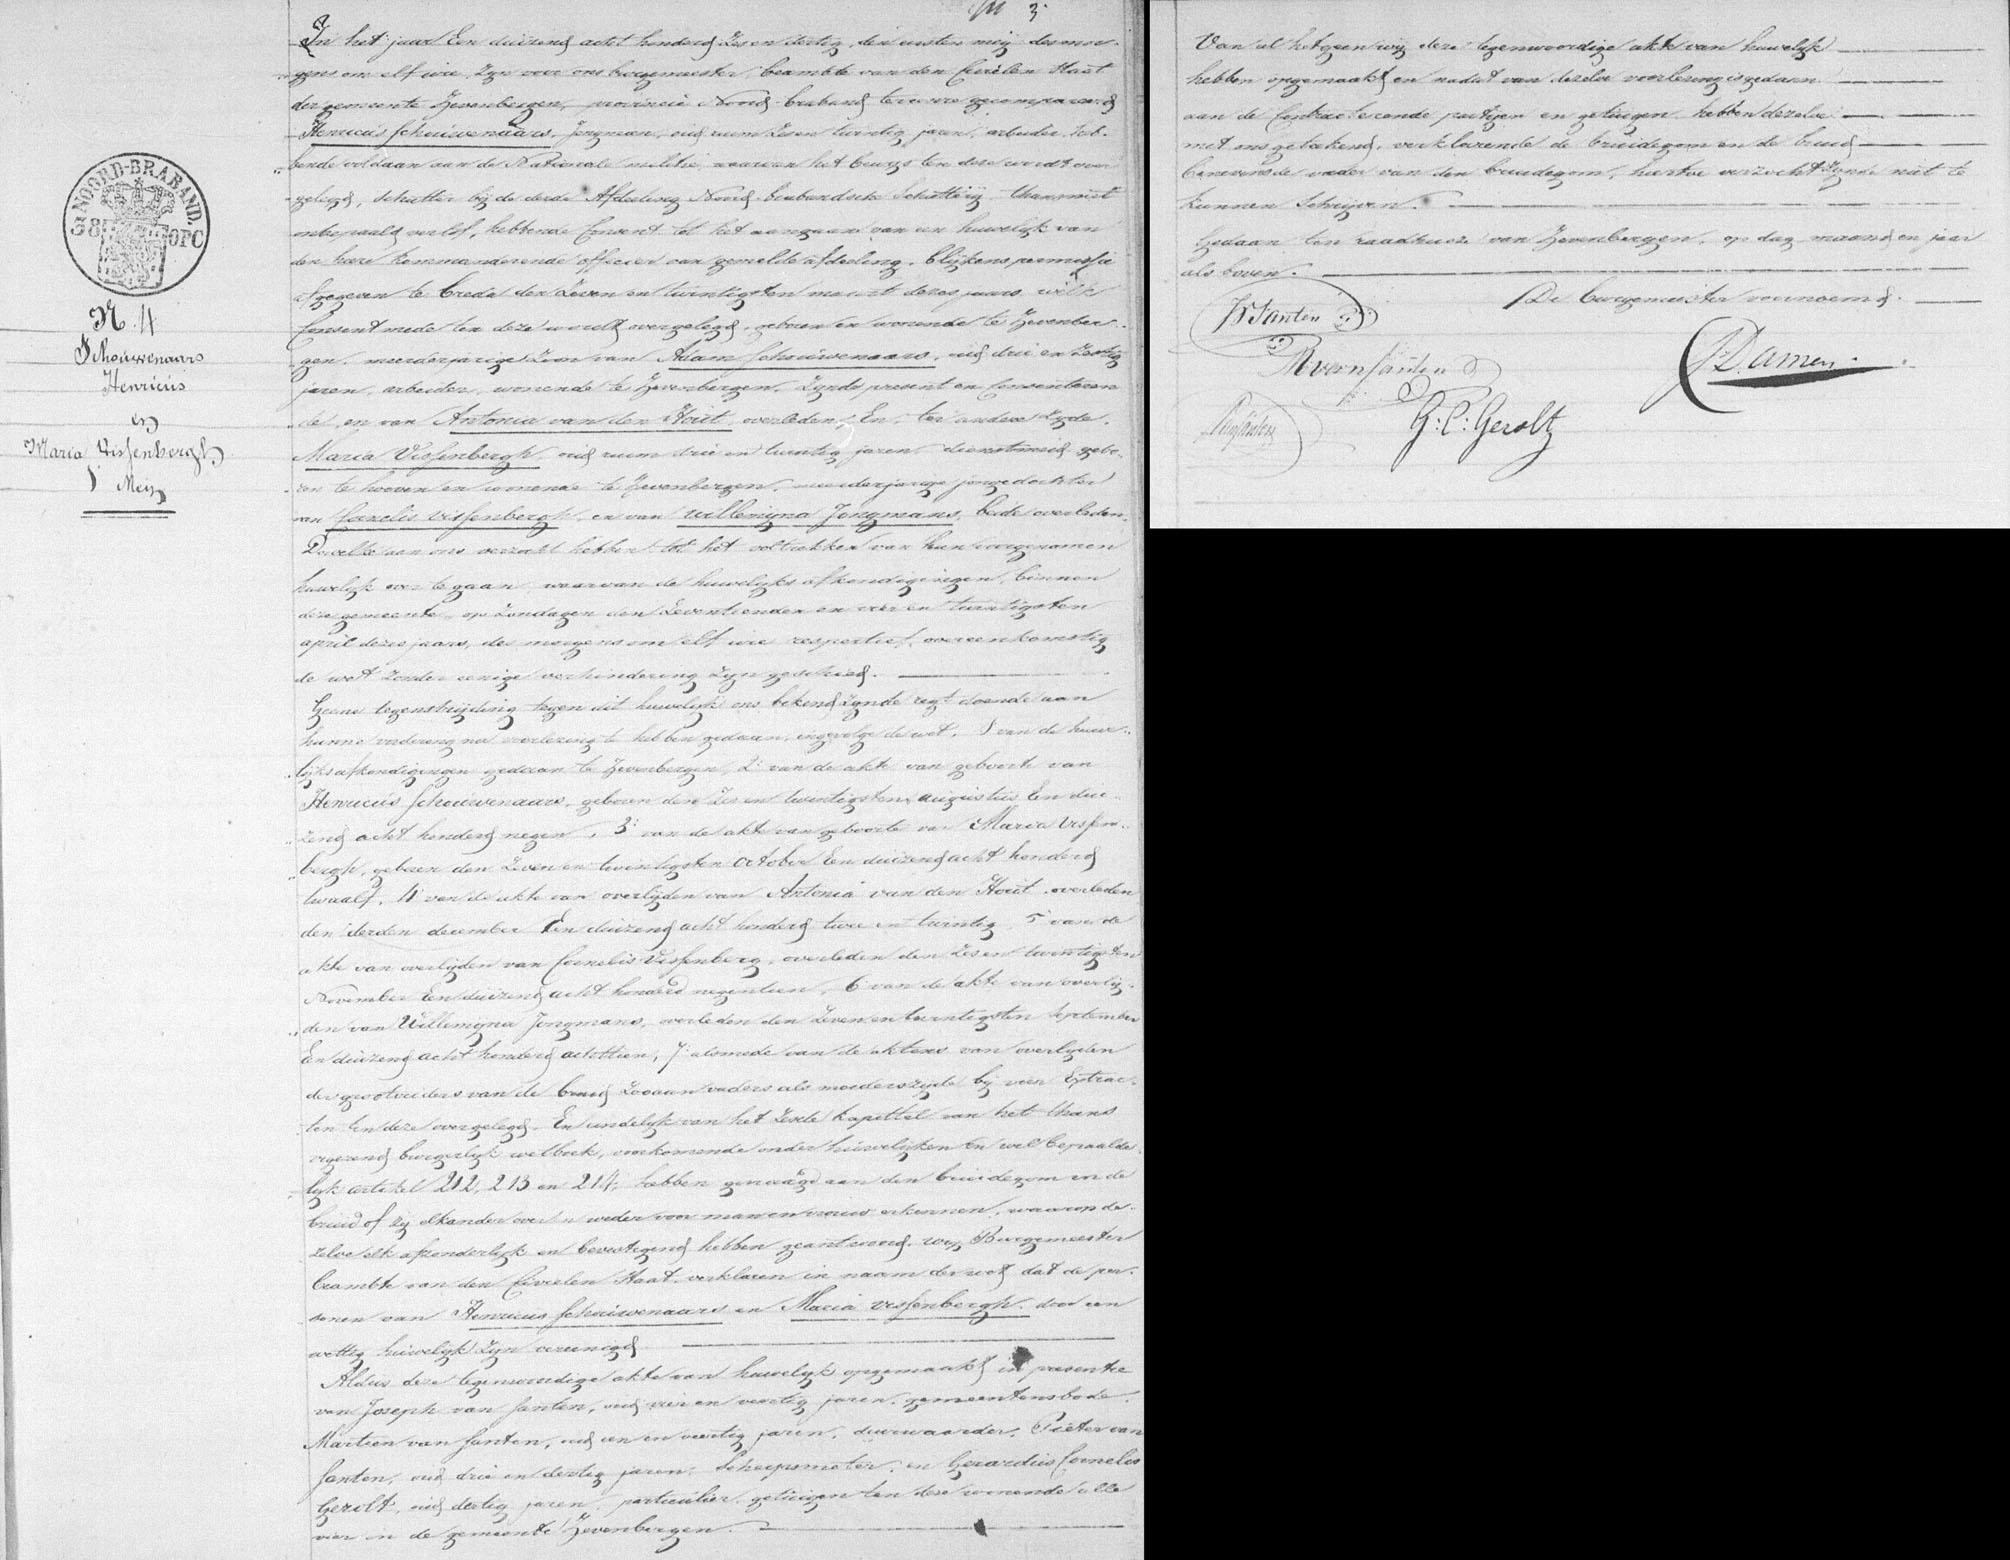 3
NOORD-BRABAND.
38 OPC
N. 4
Schouwenaars
Henricus
en
Maria Vissenbergh
1 Meij
In het jaar Een duizend acht honderd Zes en dertig, den eersten meij des mor-
gens om elf ure, Zyn voor ons burgemeester, beambte van den Civielen Staat
der gemeente Zevenbergen, provincie Noord-braband gecompareerd
Henricus Schouwenaars, Jongman, oud ruim Zes en twintig jaren, arbeider, heb-
bende voldaan aan de Nationale militie, waarvan het bewys ten deze wordt over
gelegd, schutter bij de derde Afdeeling Noord-brabandsche Schutterij, thans met
onbepaald verlof, hebbende Consent tot het aangaan van een huwelyk van
den heer kommanderende officier van gemelde afdeeling, blykens permissie
afgegeven te breda den Zeven en twintigsten maart dezes jaars, welk
Consent mede ten deze wordt overgelegd, geboren en wonende te Zevenber-
gen, meerderjarige Zoon van Adam Schouwenaars, oud drie en Zestig
jaren, arbeider, wonende te Zevenbergen, Zynde present en Consenteren
de en van Antonia van den Hout, overleden; En, ter andere Zyde,
Maria Vissenbergh, oud ruim drie en twintig jaren, dienstmeid, gebo-
ren te hoeven en wonende te Zevenbergen, meerderjarige jonge dochter
van Cornelis Vissenbergh, en van Willemyna Jongmans, beide overleden,
Dewelke aan ons verzocht hebben tot het voltrekken van hun voorgenomen
huwelyk over te gaan, waarvan de huwelyks afkondigingen, binnen
deze gemeente, op Zondagen den Zeventienden en vier en twintigsten
april dezes jaars, des morgens om elf ure respectief, overeenkomstig
de wet Zonder eenige verhindering Zyn geschied.
Geene tegenstrijding tegen dit huwelyk ons bekend Zynde regt doende aan
hunne vordering na voorlezing te hebben gedaan, ingevolge de wet, 1 van de huwe-
lyks afkondigingen gedaan te Zevenbergen, 2: van de akte van geboorte van
Henricus Schouwenaars, geboren den Zes en twintigsten augustus Een dui-
zend acht honderd negen, 3: van de akte van geboorte van Maria Vissen-
bergh, geboren den Zeven en twintigsten october Een duizend acht honderd
twaalf, 4 van de akte van overlyden van Antonia van den Hout, overleden
den derden december Een duizend acht honderd twee en twintig, 5 van de
akte van overlyden van Cornelis Vissenberg, overleden den Zes en twintigsten
November Een duizend acht honderd negentien, 6 van de akte van overly-
den van Willemyna Jongmans, overleden den Zeven en twintigsten September
Een duizend acht honderd achttien, 7: alsmede van de aktens van overlyden
der grootouders van de bruid Zoo aan vaders als moeders zyde by vier Extrac-
ten ten deze overgelegd. En eindelyk van het Zesde kapittel van het thans
vigerend burgerlyk wetboek, voorkomende onder huwelyken en wel bepaalde-
lyk artikel 212, 213 en 214, hebben gevraagd aan den bruidegom en de
bruid of zy elkander over en weder voor man en vrouw erkennen, waarop de-
zelve elk afzonderlyk en bevestigend hebben geantwoord, wy Burgemeester
beambte van den Civielen Staat, verklaren in naam der wet, dat de per-
sonen van Henricus Schouwenaars en Maria Vissenbergh, door een
wettig huwelyk Zyn vereenigd
Aldus deze tegenwoordige akte van huwelyk opgemaakt in presentie
van Joseph van Santen, oud vier en veertig jaren, gemeentensbode,
Martien van Santen, oud een en veertig jaren, deurwaarder, Pieter van
Santen, oud drie en dertig jaren, Scheepsmeter, en Gerardus Cornelis
Gerolt, oud dertig jaren, particulier, getuigen ten deze wonende alle
vier in de gemeente Zevenbergen.
Van al hetgeen wij deze tegenwoordige akte van huwelyk
hebben opgemaakt en nadat van dezelve voorlezing is gedaan
aan de Contracterende partyen en getuigen hebben dezelve
met ons getekend, verklarende de bruidegom en de bruid
benevens de vader van den bruidegom, hiertoe verzocht Zynde niet te
kunnen Schryven.
Gedaan ten raadhuize van Zevenbergen, op dag, maand en jaar
als boven.
De burgemeester voornoemd.
JV Santen
M van Santen
P van Santen
G: C: Gerolt
Damen